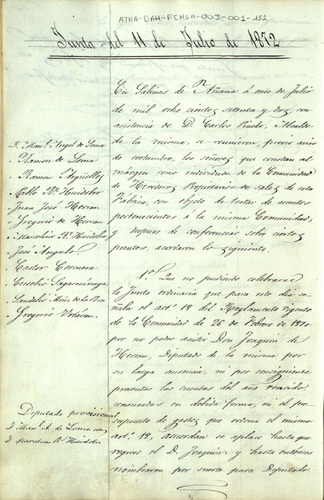 ATHA-DAH-FCHSA-003-001-152
Junta del 11 de Julio de 1872
En Salinas de Añana á once de Julio
de mil ocho cientos setenta y dos, con
asistencia de D. Carlos Pinedo, Alcalde
de la misma, se reunieron previo aviso
de costumbre, los señores que constan al
margen como individuos de la Comunidad
de Herederos Propietarios de sales de esta
Fábrica, con objeto de tratar de asuntos
pertenecientes á la misma Comunidad,
y despues de conferenciar sobre ciertos
puntos, acordaron lo siguiente.
1º Que no pudiendo celebrarse
la Junta ordinaria que para este dia se
ñala el art. 18 del Reglamento vigente
de la Comunidad de 26 de Febrero de 1870
por no poder asistir Don Joaquin de
Herran, Diputado de la misma por
su larga ausencia, ni por consiguiente
presentar las cuentas del año vencido
ecsaminadas en debida forma, ni el pre-
supuesto de gastos que ordena el mismo
artº 18, acuerdan se aplace hasta que
regrese el D. Joaquin y hasta entonces
nombraron por suerte para Diputado
D. Man.l Angel de Loma
Ramon de Loma
Ramon
Pablo
Juan José Herran
Gregorio de Herran
Marcelino
José Angulo
Castor
Eusebio
Gregorio
Diputado provisional
D. Man.l A. de Loma con
D.